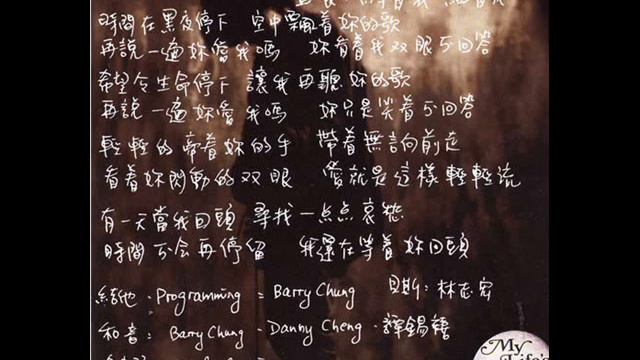 時間在黑夜停下 空中飄着妳的歌
再說一遍妳愛我嗎 妳看着我双眼不回答
希望令生命停下 讓我再聽妳的歌
再說一遍妳愛我嗎 妳只是笑着不回答
輕輕的帶着妳的手 帶着無言向前走
看着妳閃動的双眼 愛就是這樣輕輕流
有一天當我回頭 尋找一点点哀愁
時間不会再停留 我還在等着妳回頭
結他・Programming = Barry Chung 貝斯: 林志宏
和音: Barry Chung・Danny Cheng・譚錫禧
My
Life